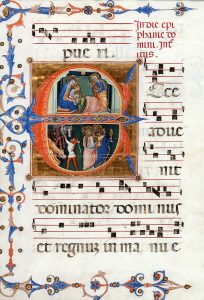 In die epi
phanie do
mini. Int
itus.
pue ri.
E cce
adue
nit
dominator domi nus
et regnuz in ma nu e